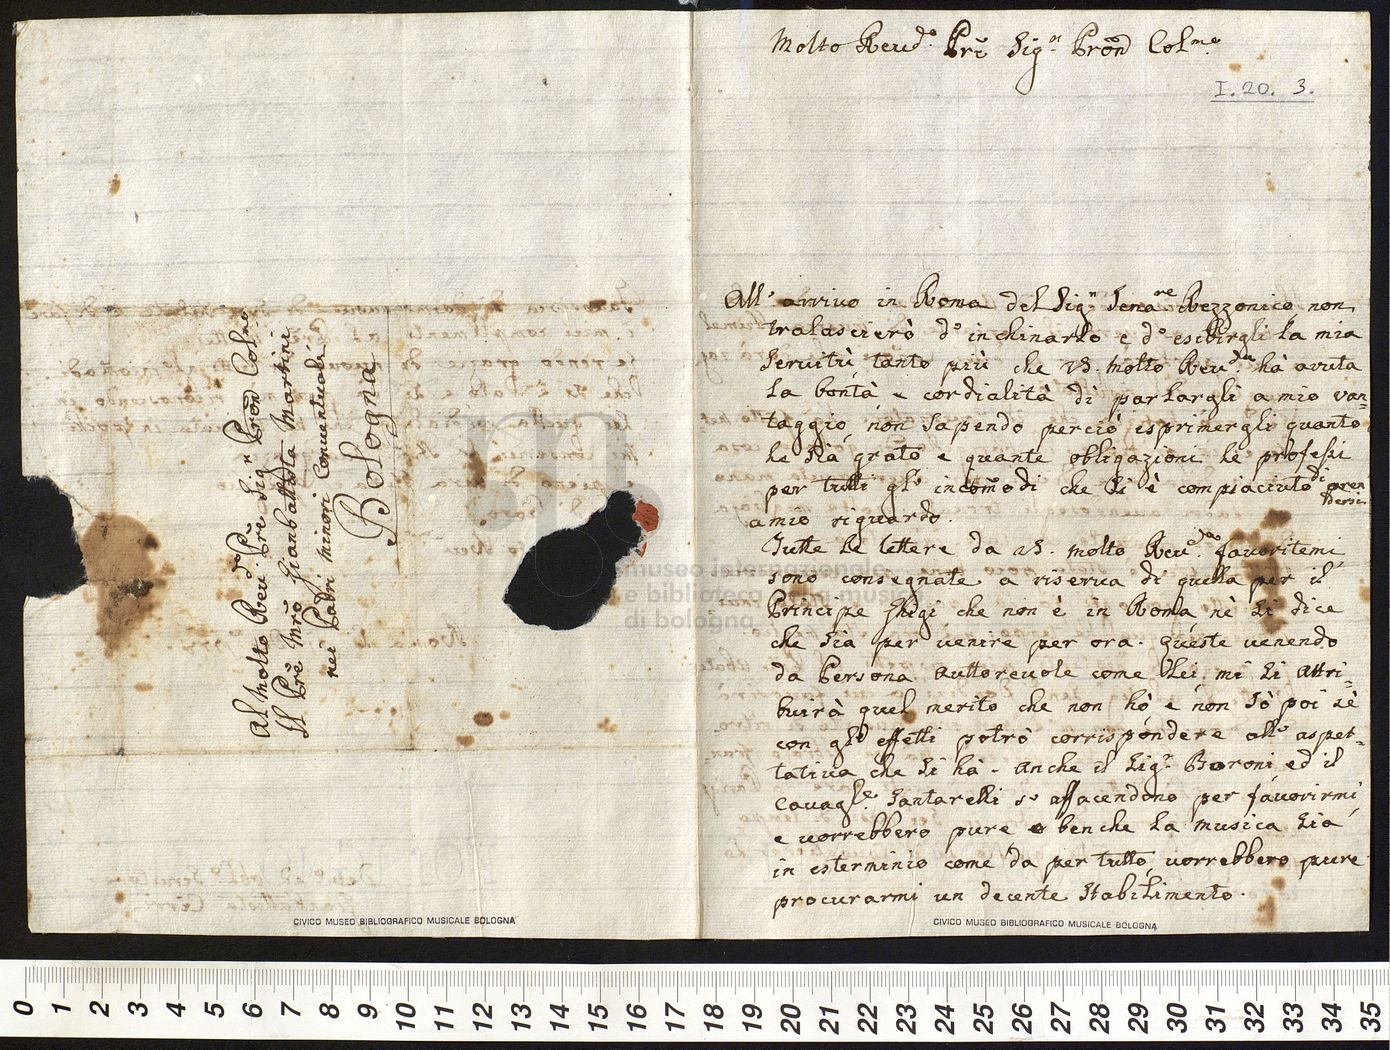 Molto Reud.o Prẽ Sig.r Prõn Col.mo
I. 20. 3.
All'arrivo in Roma del Sig.r Sena.re Rezzonico, non
tralascierò d'inchinarlo e d'esibirgli la mia
servitù, tanto più che V.S. molto Reu.da hà avuta
la bontà e cordialità di parlargli a mio van-
taggio, non sapendo perciò esprimergli quanto
le sia grato e quante obligazioni le professi
per tutti gl'incom̃odi che si è compiaciuto di pren
dersi
a mio riguardo.
Tutte le lettere da V.S. molto Reu.da favoritemi
sono consegnate a riserva di quella per il
Principe Ghigi che non è in Roma nè si dice
che sia per venire per ora. queste venendo
da Persona auttorevole come Lei, mi si attri-
buirà quel merito che non hò e non sò poi sè
con gl'effetti potrò corrispondere all'aspet-
tativa che si hà. anche il Sig.r Baroni ed il
Cavagl.e Santarelli s'affacendono per favorirmi
e vorrebbero pure benche la musica sia
in esterminio come da per tutto, vorrebbero pure
procurarmi un decente stabilimento.
Al Molto Reu.d Prẽ Sig.r Prõn Colmo
Il Prẽ Mrõ Gianbattista Martini
nei Padri minori Conventuale
Bologna
museo internazionale
e biblioteca della musica
di bologna
CIVICO MUSEO BIBLIOGRAFICO MUSICALE BOLOGNA
CIVICO MUSEO BIBLIOGRAFICO MUSICALE BOLOGNA
0 1 2 3 4 5 6 7 8 9 10 11 12 13 14 15 16 17 18 19 20 21 22 23 24 25 26 27 28 29 30 31 32 33 34 35